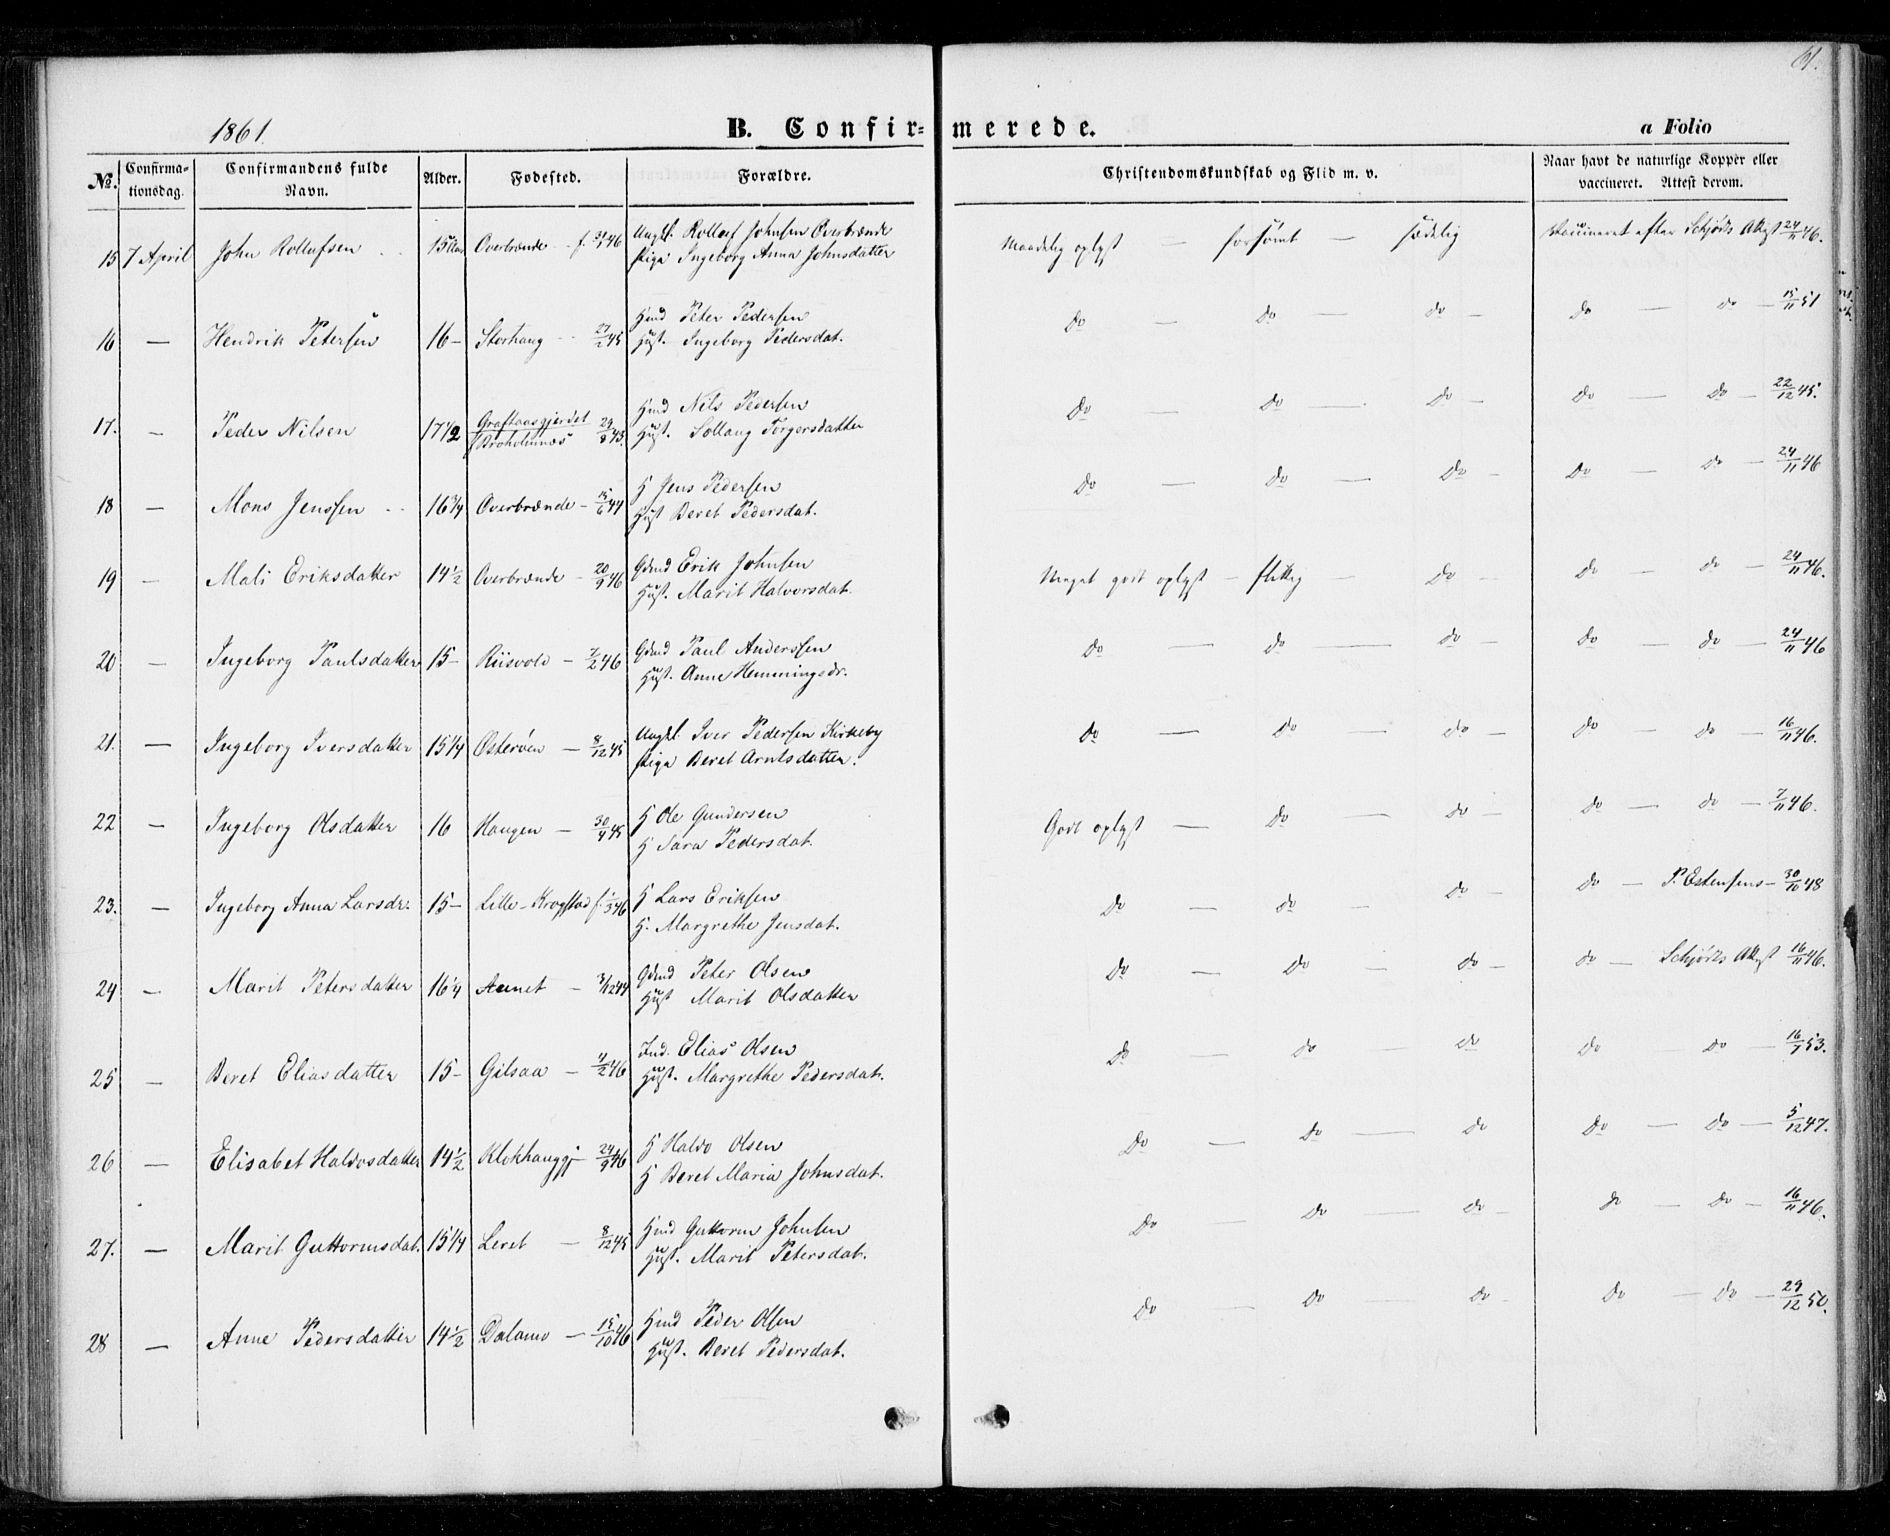 61.
1861.
B. Confir-merede.
a Folio
No. Confirmationsdag. Confirmandens fulde Navn. Alder. Fødested. Forældre. Christendomskundskab og Flid m. v. Naar havt de naturlige Kopper eller vaccineret. Attest derom.
15 7 April John Rollufsen 15 Overbrænde f. 46 Ungkl. Rolluf Johnsen Overbrænde Maadelig oplyst — forsömt — sædelig Vaccineret efter Schjørts Attest 24/11 46.
Pige Ingeborg Anna Johnsdatter
16 — Hendrik Petersen 16 – Storhaug 45 Hmd Peter Pedersen Do — do — do — do — do — 15/11 51
Hust. Ingeborg Pedersdat.
17. — Peder Nilsen 17 1/2 Graftaasgjerdet 29/8 43. Hmd Nils Pedersen Do — do — do — do — do — 22/12 45.
Hust. Sollaug Torgersdatter
18 — Mons Jenssen 16 3/4 Overbrænde – 15/6 44 H Jens Pedersen Do — do — do — do — do — 24/11 46
Hust Beret Pedersdat.
19 — Mali Eriksdatter 14 1/2 Overbrænde – 20/9 46 Gdmd Erik Johnsen Meget godt oplyst — flittig — do — do — do — 24/11 46.
Hust. Marit Halvorsdat.
20 — Ingeborg Paulsdatter 15 – Riisvold — 7/2 46 Gdmd Paul Anderssen Do — do — do — do — do — 24/11 46
Hust. Anne Hemmingsdr.
21. — Ingeborg Iversdatter 15 1/4 Østerøen — 8/12 45 Ungkl. Iver Pedersen Kirkeby Do — do — do — do — do — 16/11 46.
Pige Beret Arntsdatter.
22 — Ingeborg Olsdatter 16 Haugen — 30/4 45 H Ole Gundersen Godt oplyst — do — do — do — do — 7/11 46.
H Sara Pedersdat.
23. — Ingeborg Anna Larsdr. 15 – Lille-Krogstad f. 1/3 46 H Lars Eriksen Do — do — do — do — P. Estensens — 30/10 48
H. Margrethe Jensdat.
24 — Marit Petersdatter 16 1/4 Aunet — 3/12 44 Gdmd Peter Olsen Do — do — do — do — Schjørts Attest 16/11 46.
Hust Marit Olsdatter
25 — Beret Eliasdatter 15 – Gilsaa — 4/2 46 Ind. Elias Olsen Do — do — do — do — do — 16/7 53.
Hust. Margrethe Pedersdat.
26 — Elisabet Haldosdatter 14 1/2 Klokhauggj 24/9 46 H Haldo Olsen Do — do — do — do — do — 5/12 47.
H Beret Maria Johnsdat.
27. — Marit Guttormsdat. 15 1/4 Leret — 8/12 45 Hmd Guttorm Johnsen Do — do — do — do — do — 16/11 46.
Hust. Marit Petersdat.
28 — Anne Pedersdatter 14 1/2 Dalamo — 15/10 46 Hmd Peder Olsen Do — do — do — do — do — 29/12 50.
Hust. Beret Pedersdat.